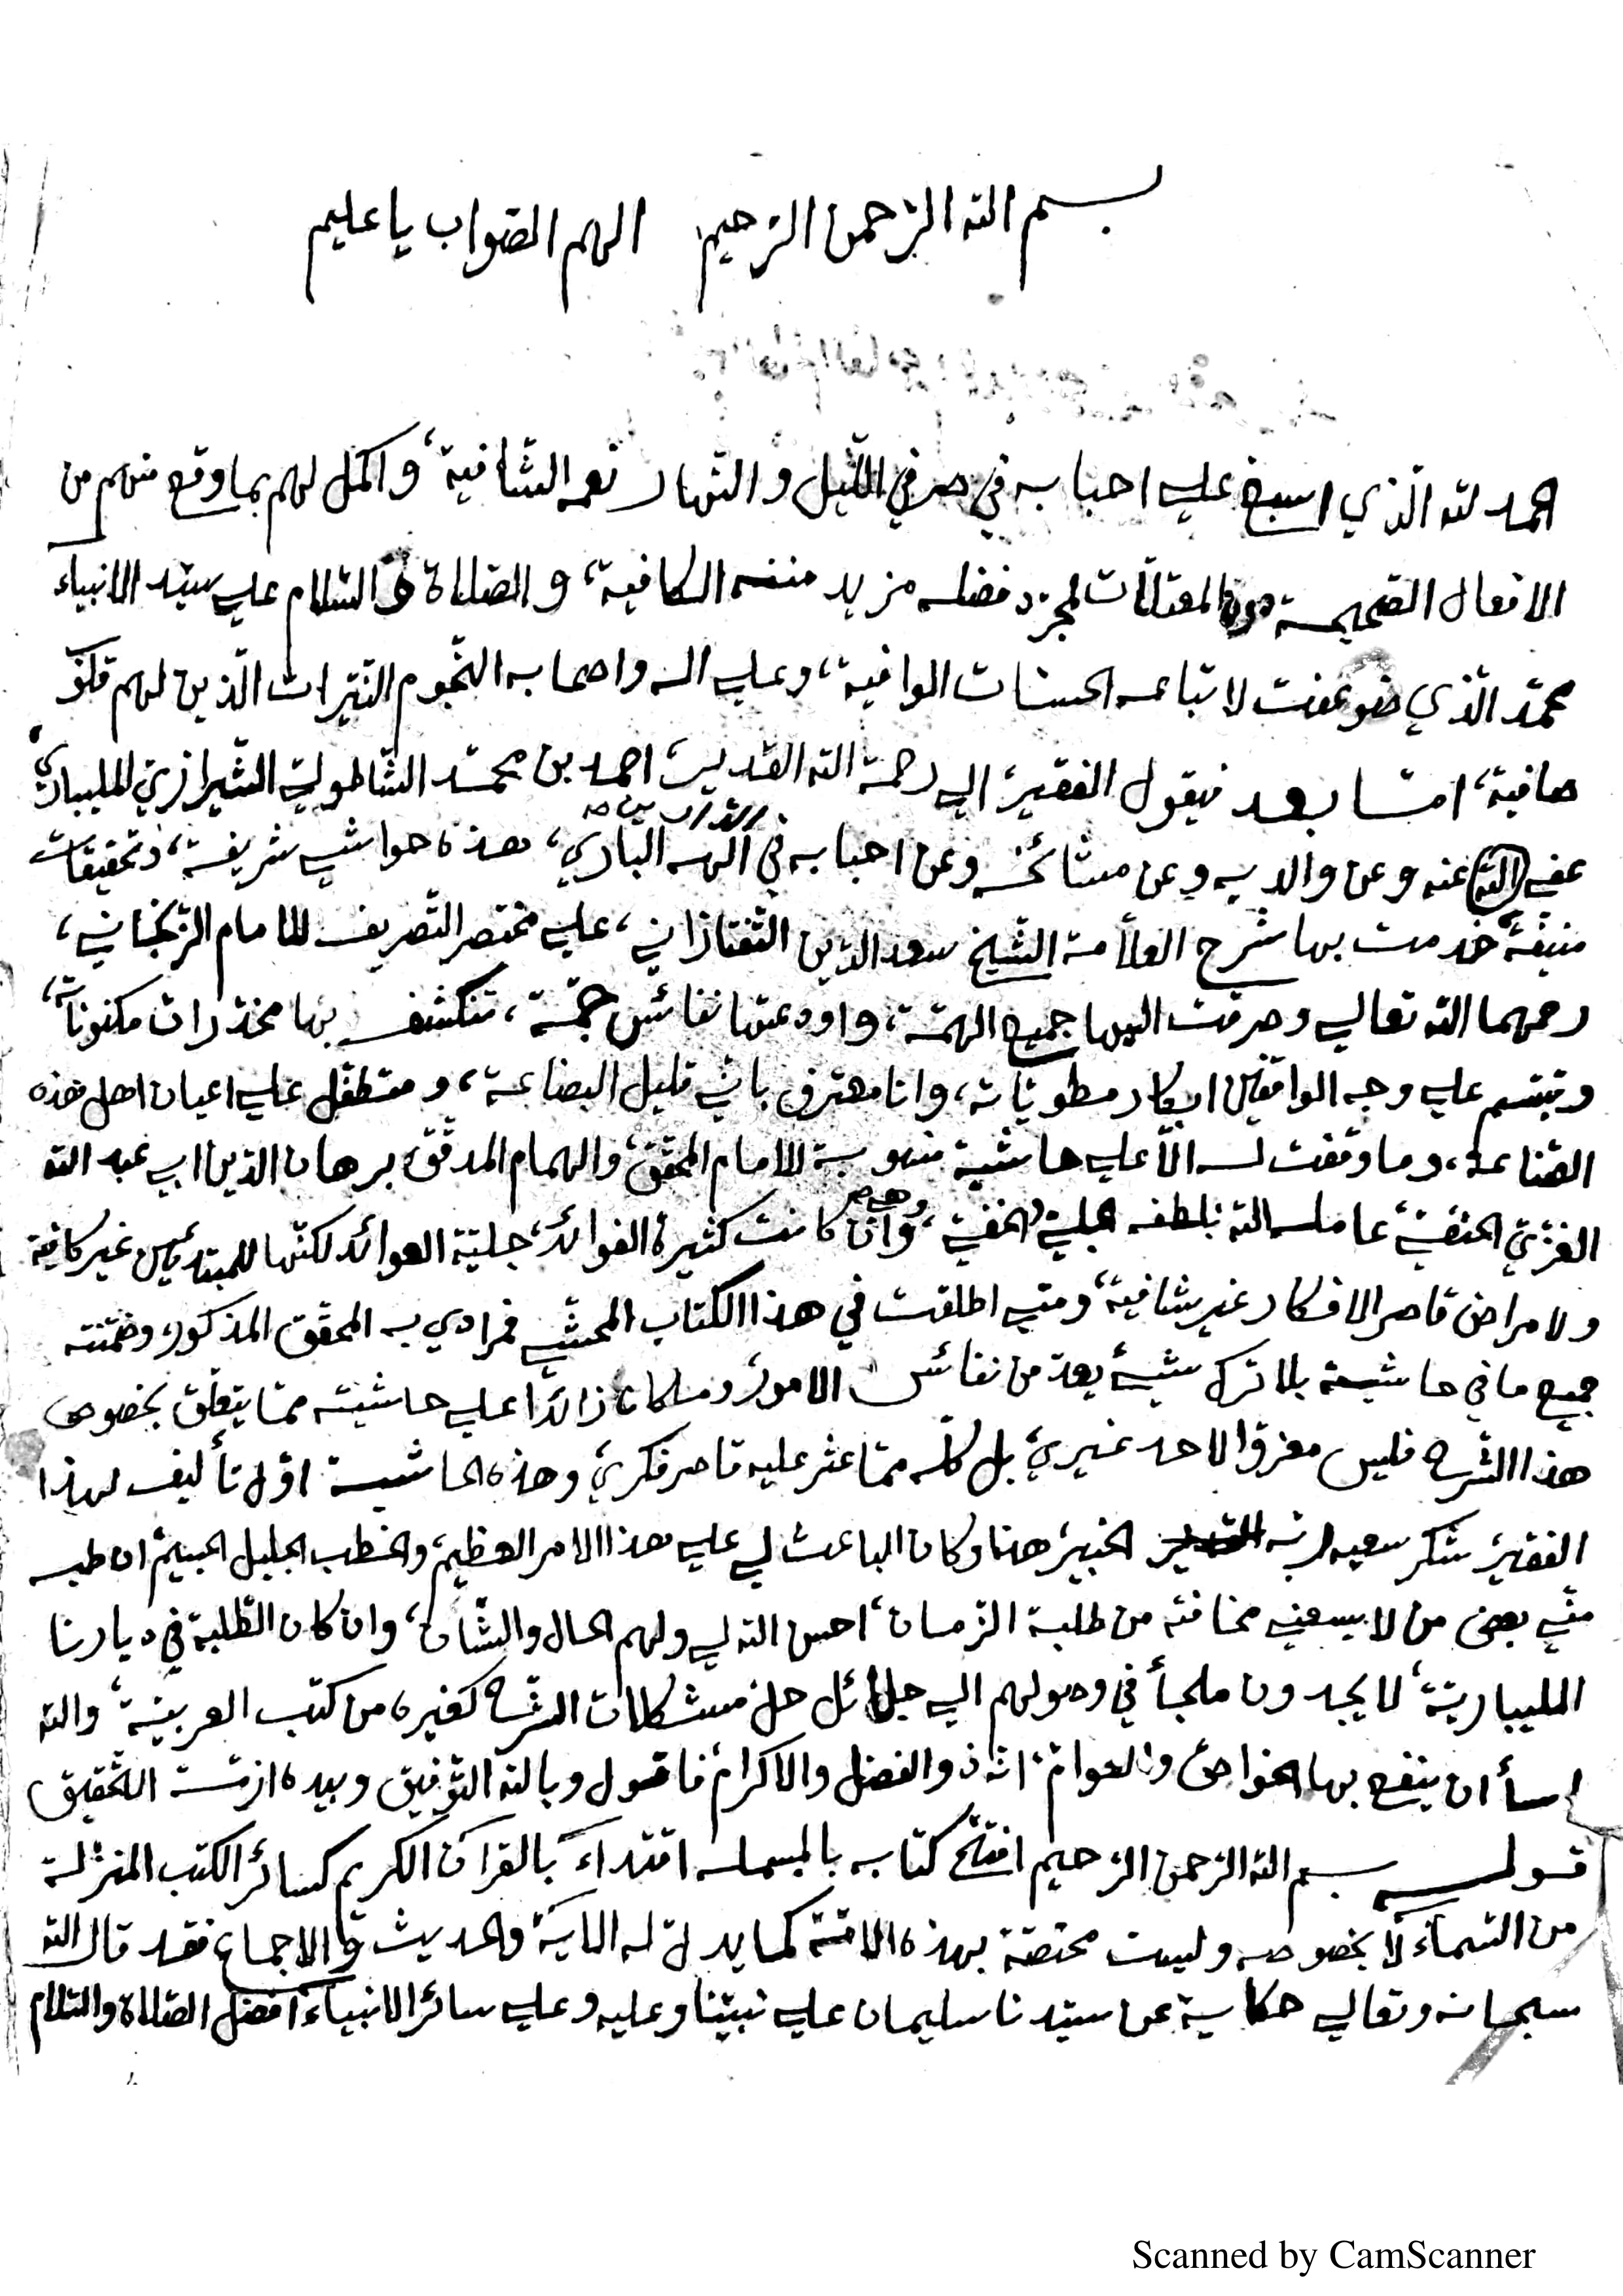 بسم الله الرّحمن الرّحيم اللهم الصّواب يا عليم
الحمد لله الّذي اسبغ علي احبابه في صرفي اللّيل والنّهار نعمه الشّافية، واكمل لهم بما وقع منهم من
الافعال الصّحيحة دون المعتلّات لمجرّد فضله مزيد مننه الكافية، والصّلاة والسّلام علي سيّد الانبياء
محمّد الّذي ضوعفت لاتباعه الحسنات الوافية، وعلي اله واصحابه النّجوم النّيّرات الّذين لهم قلوب
صافية، امّا بعد فيقول الفقير الي رحمة الله القدير احمد بن محمّد الشّاطولي الشّيرازي المليباري
عفي الله عنه وعن والديه وعن مشائخه وعن احبابه في الدارين الهه الباري، هذه حواشي شريفة، وتحقيقات
منيفة، خدمت بها شرح العلّامة الشّيخ سعد الدّين التّفتازاني، علي مختصر التّصريف للامام الزّنجاني،
رحمهما الله تعالي وصرفت اليها جميع الهمّة، واودعتها نفائس جمّة، تنكشف بها مخدّرات مكنوناته،
وتبتسم علي وجه الواقفين ابكار مطويّاته، وانا معترف باني قليل البضاعة، ومتطفّل علي اعيان اهل هذه
الصّناعة، وما وقفت له الّا علي حاشية منسوبة للامام المحقّق، والهمام المدقّق برهان الدّين ابي عبد الله
الغزّيّ الحنفيّ، عامله الله بلطفه الجليّ والخفيّ، وهي وان كانت كثيرة الفوائد، جليّة العوائد لكنّها للمبتدئين غير كافية
ولامراض قاصر الافكار غير شافية، ومتي اطلقت في هذا الكتاب المحشي فمرادي به المحقّق المذكور، وضمّنته
جميع ما في حاشيته بلا ترك شيئ يعدّ من نفائس الامور، وما كان زائدًا علي حاشيته ممّا يتعلّق بخصوص
هذا الشّرح فليس معزوّا لاحد غيري، بل كلّه ممّا عثر عليه قاصر فكري، وهذه الحاشية اوّل تأليف لهذا
الفقير، شكر سعيه ربّه الخبير، هذا وكان الباعث لي علي هذا الامر العظيم، والخطب الجليل الجسيم، ان طلبه
منّي بعض من لا يسعني مخالفته من طلبة الزّمان، احسن الله لي ولهم الحال والشّان، وان كان الطّلبة في ديارنا
المليباريّة، لا يجدون ملجأ في وصولهم الي جلائل حلّ مشكلات الشّرح كغيره من كتب العربيّة، والله
اسأل ان ينفع بها الخواصّ والعوام، انّه ذو الفضل والاكرام، فاقول وبالله التّوفيق وبيده ازمّة التّحقيق
قوله بسم الله الرّحمن الرّحيم افتتح كتابه بالبسملة اقتداءً بالقرآن الكريم كسائر الكتب المنزّلة
من السّماء لا بخصوصه وليست مختصّة بهذه الامّة كما يدلّ له الاية والحديث والاجماع فقد قال الله
سبحانه وتعالي حكاية عن سيّدنا سليمان علي نبيّنا وعليه وعلي سائر الانبياء افضل الصّلاة والسّلام
Scanned by CamScanner